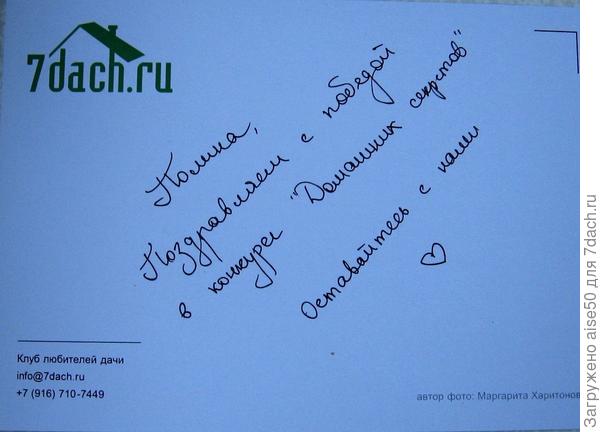 7dach.ru
Полина,
Поздравляем с победой
в конкурсе "Домашних секретов"
Оставайтесь с нами
Клуб любителей дачи
info@7dach.ru
+7 (916) 710-7449
автор фото: Маргарита Харитонов
Загружено aise50 для 7dach.ru